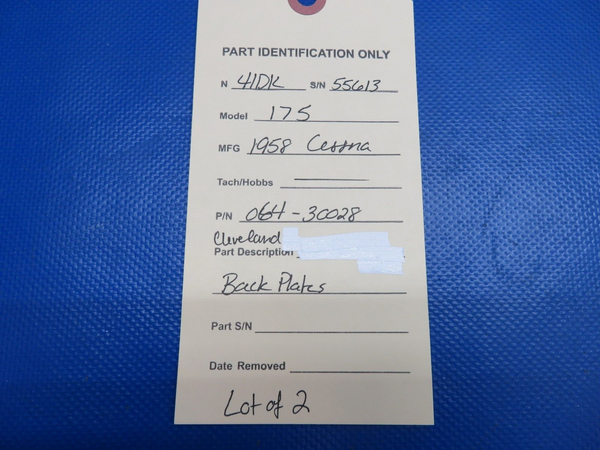 PART IDENTIFICATION ONLY
N 41DK S/N 55613
Model 175
MFG 1958 Cessna
Tach/Hobbs
P/N 064-30028
Cleveland
Part Description
Back Plates
Part S/N
Date Removed
Lot of 2